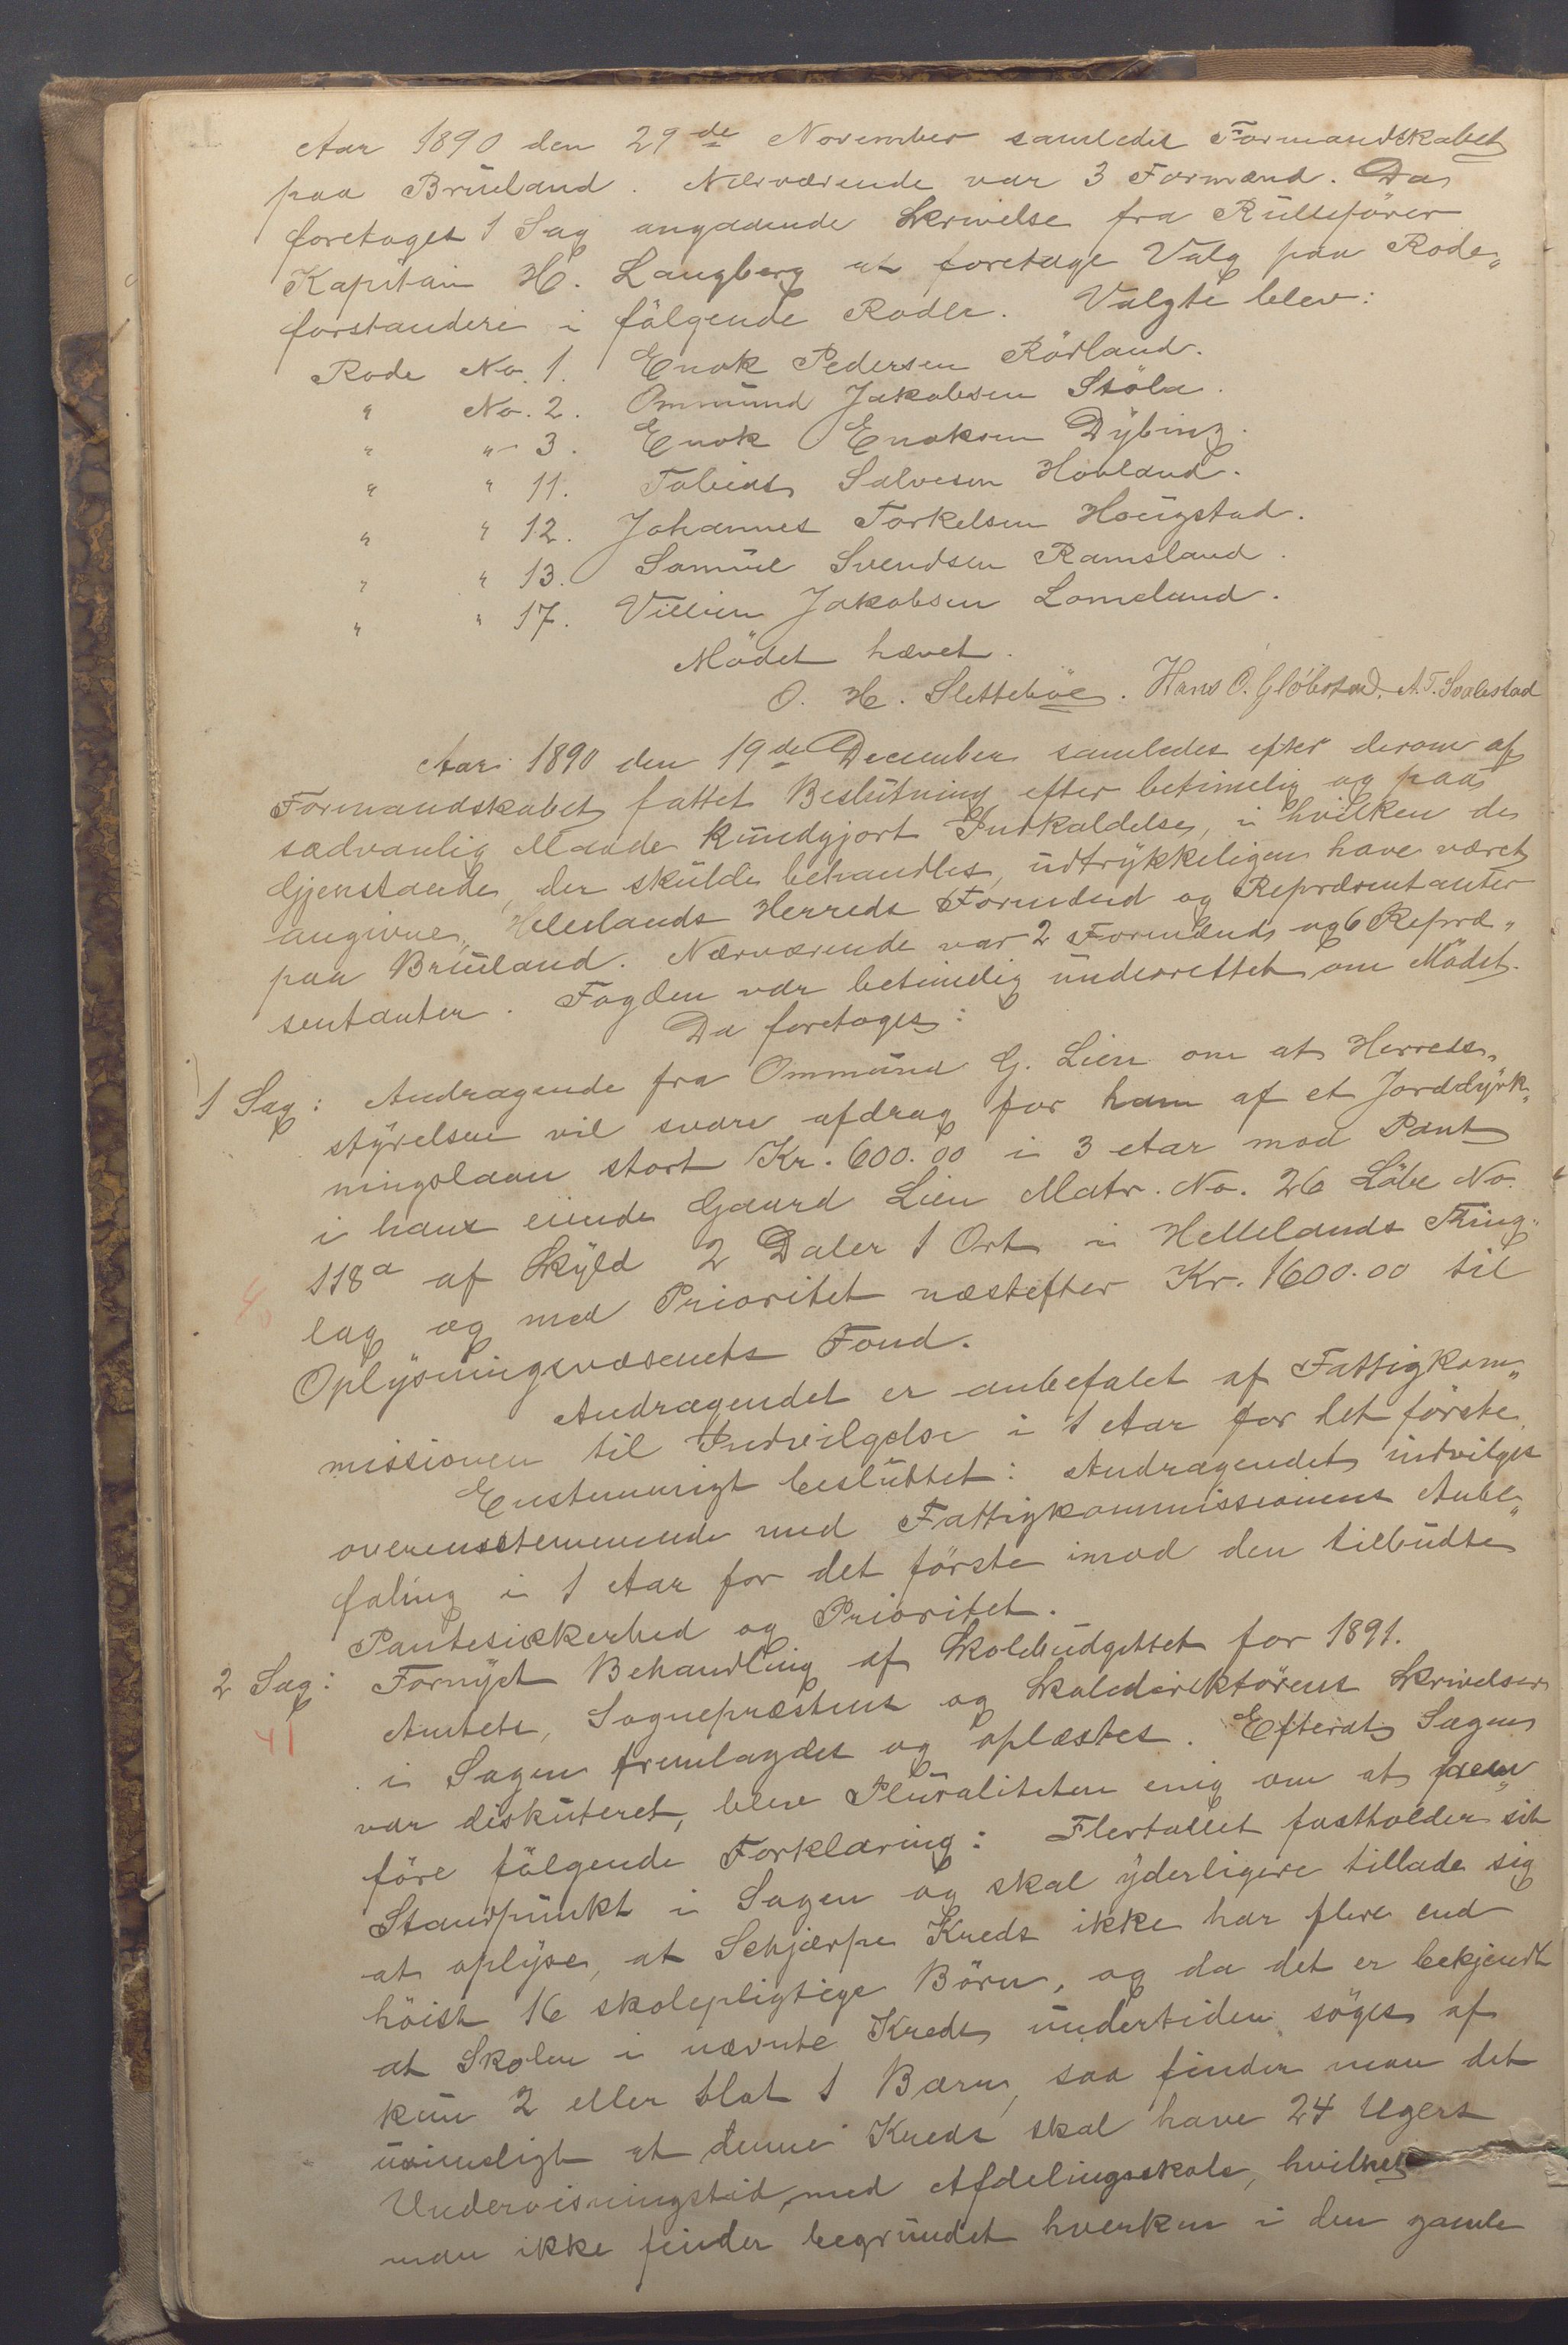 Aar 1890 den 29de November samledes Formandskabet
paa Brueland. Nærværende var 3 Formænd. Da
foretoges 1 Sag angaaende Skrivelse fra Rullefører
Kapitain H. Langberg at foretage Valg paa Rode„
forstandere i følgende Roder. Valgte blev:
Rode No. 1. Enok Pedersen Rödland.
" No. 2. Ommund Jakobsen Støle.
" " 3. Enok Enoksen Dybing.
" " 11. Tobias Salvesen Hovland.
" " 12. Johannes Torkelsen Hougstad.
" " 13. Samuel Svendsen Ramsland.
" " 17. Villum Jakobsen Lomeland.
Mödet hævet.
O. H. Sletteböe. Hans O. Gløbstad. A. T. Svalestad
Aar 1890 den 19de December samledes efter derom af
Formandskabet fattet Beslutning efter betimelig og paa
sædvanlig Maade kundgjort Indkaldelse, i hvilken de
Gjenstande, der skulde behandles, udtrykkeligen have været
angivne, Hellelands Herreds Formænd og Repræsentanter
paa Brueland. Nærværende var 2 Formænd og 6 Repræ„
sentanter. Fogden var betimelig underrettet om Mödet.
Da foretoges:
1 Sag: Andragende fra Ommund G. Lien om at Herreds„
styrelsen vil svare afdrag for ham af et Jorddyrk„
ningslaan stort Kr. 600.00 i 3 Aar mod Pant
i hans eiende Gaard Lien Matr. No. 26 Löbe No.
118a af Skyld 2 Daler 1 Ort i Hellelands Thing„
lag og med Prioritet næstefter Kr. 1600.00 til
Oplysningsvæsenets Fond.
Andragendet er anbefalet af Fattigkom„
missionen til Indvilgelse i 1 Aar for det förste.
Enstemmigt besluttet: Andragendet indvilges
overensstemmende med Fattigkommissionens Anbe„
faling i 1 Aar for det förste imod den tilbudte
Pantesikkerhed og Prioritet.
2 Sag: Fornyet Behandling af Skolebudgettet for 1891.
41
Amtets, Sognepræstens og Skoledirektörens Skrivelser
i Sagen fremlagdes og oplæstes. Efterat Sagen
var diskuteret, blev Pluraliteten enig om at frem„
före fölgende Forklaring: Flertallet fastholder sit
Standpunkt i Sagen og skal yderligere tillade sig
at oplyse, at Schjærpe Kreds ikke har flere end
höist 16 skolepligtige Börn, og da det er bekjendt
at Skolen i nævnte Kreds undertiden söges af
kun 2 eller blot 1 Barn, saa finder man det
urimeligt at denne Kreds skal have 24 Ugers
Undervisningstid med Afdelingsskole, hvilket
man ikke finder begrundet hverken i den gamle